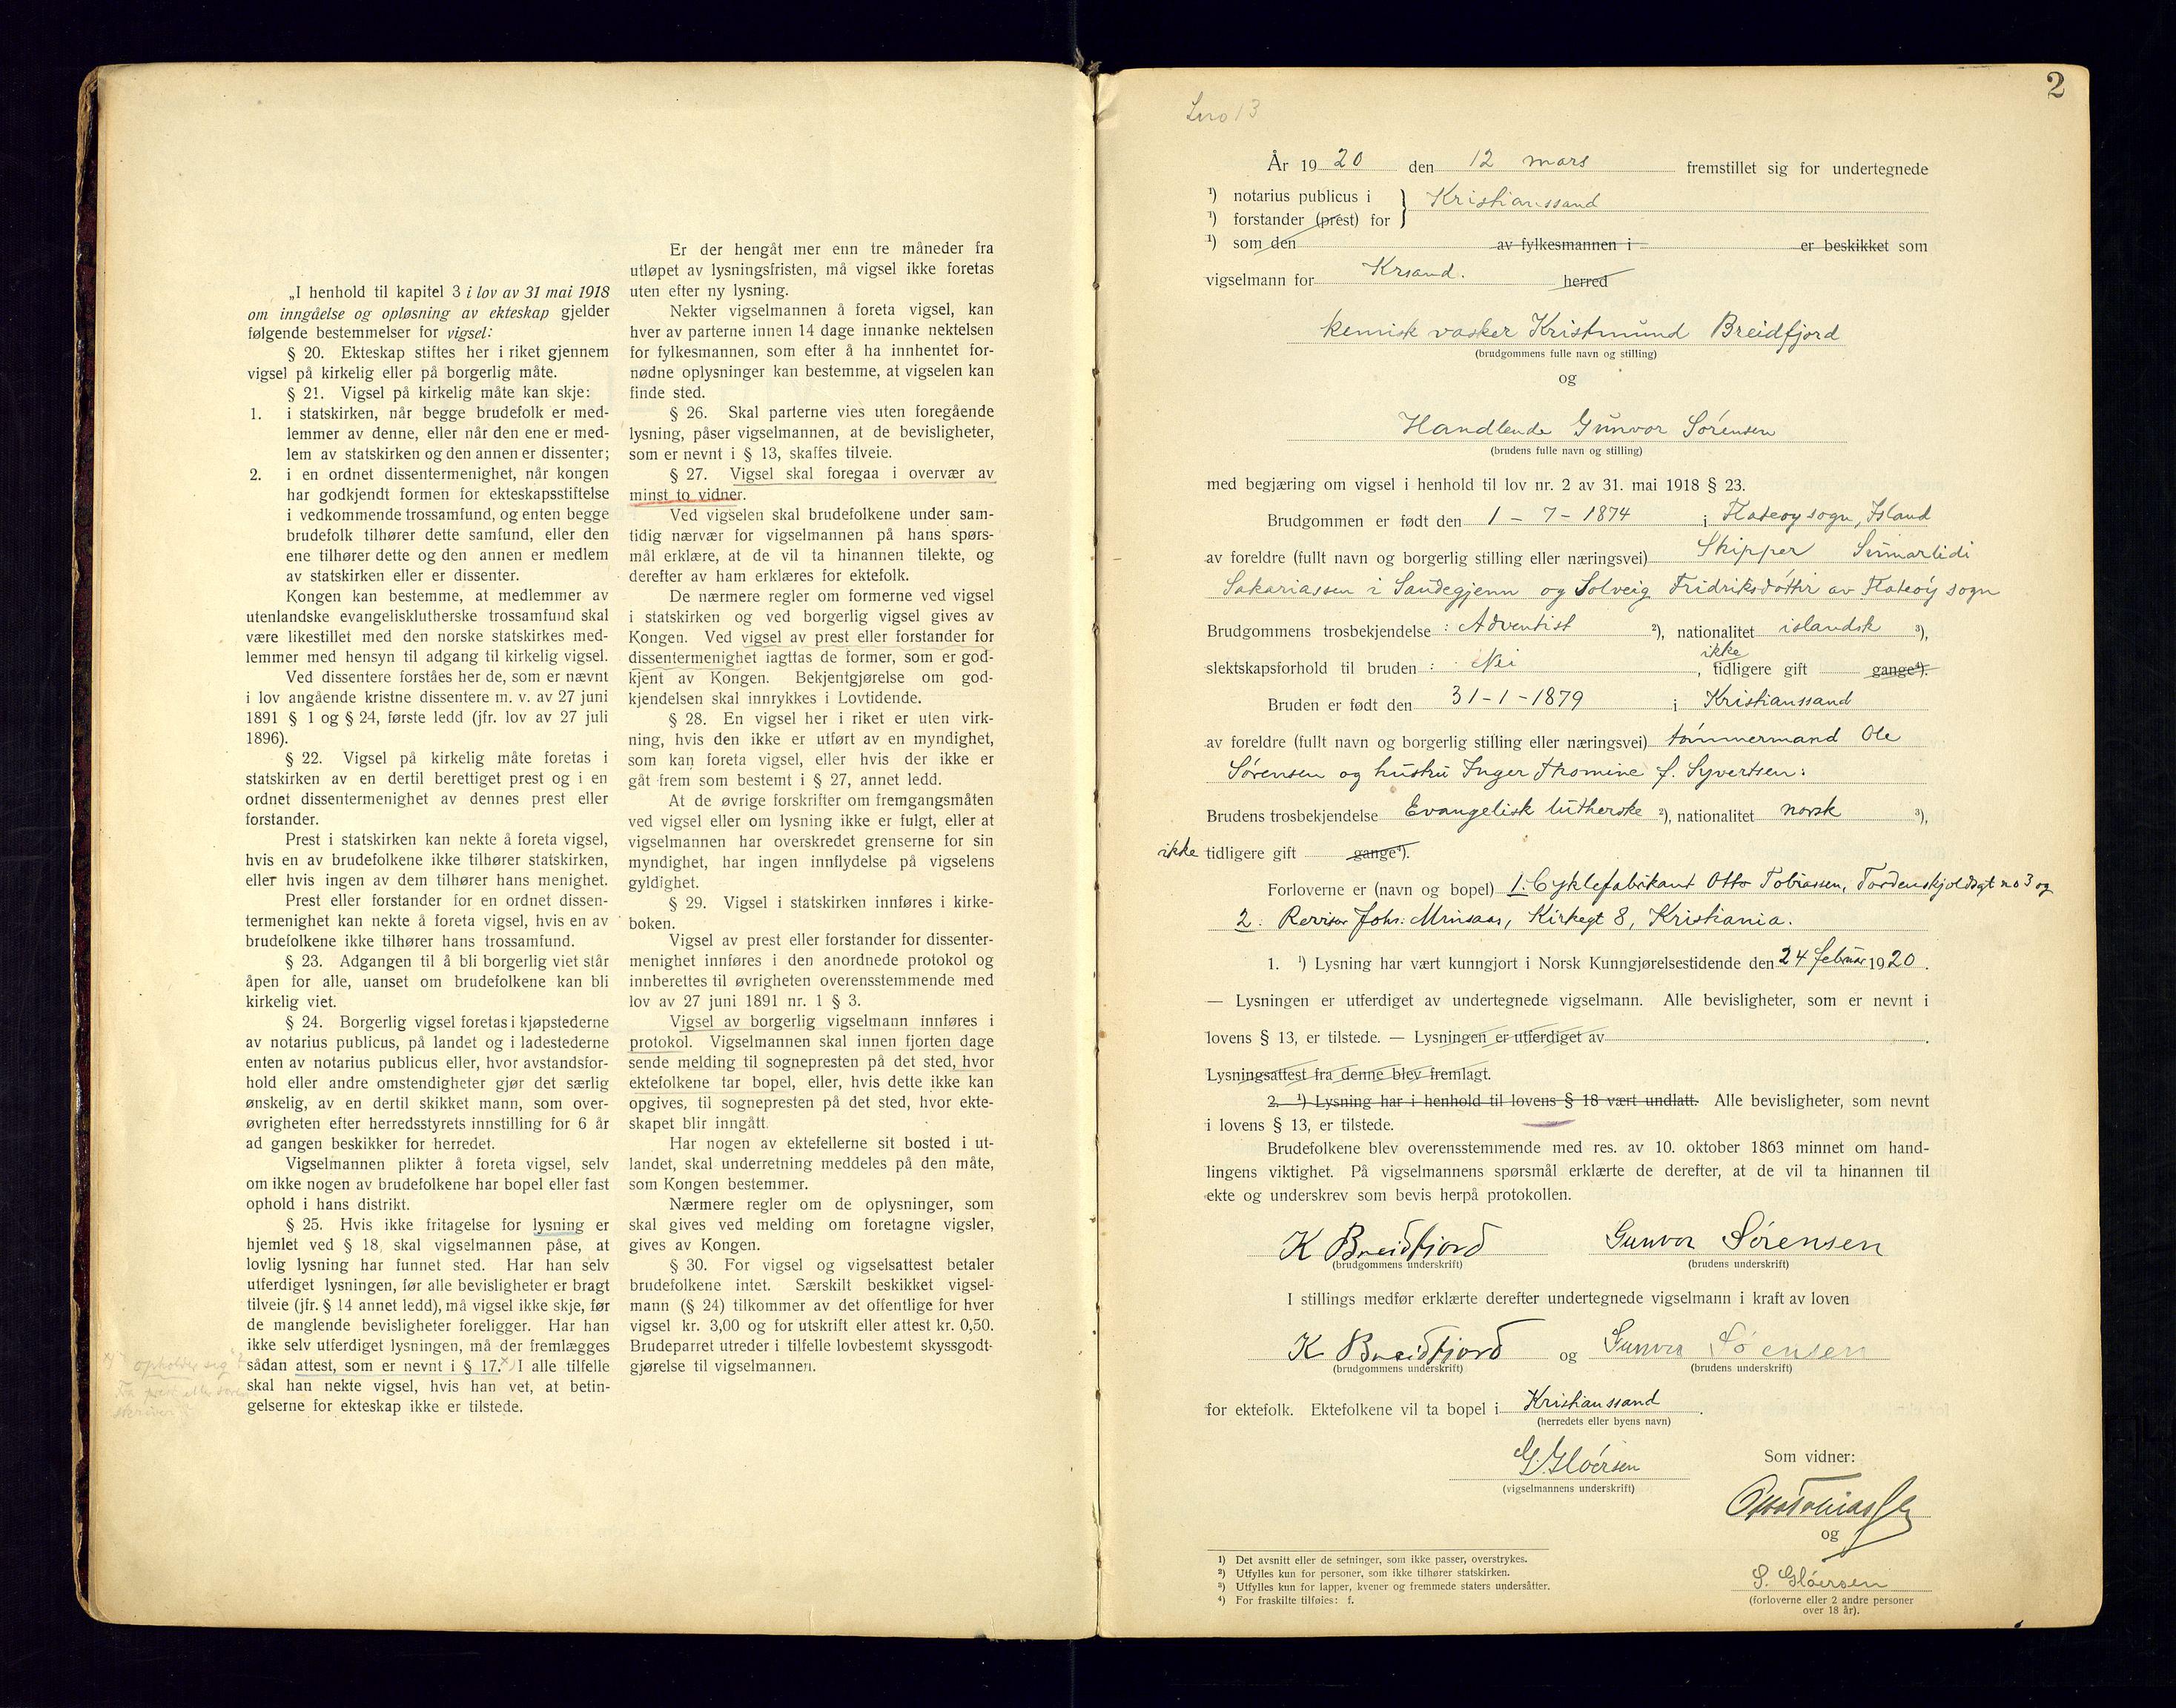 „I henhold til kapitel 3 i lov av 31 mai 1918
om inngåelse og opløsning av ekteskap gjelder
følgende bestemmelser for vigsel:
§ 20. Ekteskap stiftes her i riket gjennem
vigsel på kirkelig eller på borgerlig måte.
§ 21. Vigsel på kirkelig måte kan skje:
1. i statskirken, når begge brudefolk er med-
lemmer av denne, eller når den ene er med-
lem av statskirken og den annen er dissenter;
2. i en ordnet dissentermenighet, når kongen
har godkjendt formen for ekteskapsstiftelse
i vedkommende trossamfund, og enten begge
brudefolk tilhører dette samfund, eller den
ene tilhører dette og den annen er medlem
av statskirken eller er dissenter.
Kongen kan bestemme, at medlemmer av
utenlandske evangelisklutherske trossamfund skal
være likestillet med den norske statskirkes med-
lemmer med hensyn til adgang til kirkelig vigsel.
Ved dissentere forståes her de, som er nævnt
i lov angående kristne dissentere m. v. av 27 juni
1891 § 1 og § 24, første ledd (jfr. lov av 27 juli
1896).
§ 22. Vigsel på kirkelig måte foretas i
statskirken av en dertil berettiget prest og i en
ordnet dissentermenighet av dennes prest eller
forstander.
Prest i statskirken kan nekte å foreta vigsel,
hvis en av brudefolkene ikke tilhører statskirken,
eller hvis ingen av dem tilhører hans menighet.
Prest eller forstander for en ordnet dissen-
termenighet kan nekte å foreta vigsel, hvis en av
brudefolkene ikke tilhører hans trossamfund.
§ 23. Adgangen til å bli borgerlig viet står
åpen for alle, uanset om brudefolkene kan bli
kirkelig viet.
§ 24. Borgerlig vigsel foretas i kjøpstederne
av notarius publicus, på landet og i ladestederne
enten av notarius publicus eller, hvor avstandsfor-
hold eller andre omstendigheter gjør det særlig
ønskelig, av en dertil skikket mann, som over-
øvrigheten efter herredsstyrets innstilling for 6 år
ad gangen beskikker for herredet.
Vigselmannen plikter å foreta vigsel, selv
om ikke nogen av brudefolkene har bopel eller fast
ophold i hans distrikt.
§ 25. Hvis ikke fritagelse for lysning er
hjemlet ved § 18, skal vigselmannen påse, at
lovlig lysning har funnet sted. Har han selv
utferdiget lysningen, før alle bevisligheter er bragt
tilveie (jfr. § 14 annet ledd), må vigsel ikke skje, før
de manglende bevisligheter foreligger. Har han
ikke selv utferdiget lysningen, må der fremlægges
sådan attest, som er nevnt i § 17.x) I alle tilfelle
skal han nekte vigsel, hvis han vet, at betin-
gelserne for ekteskap ikke er tilstede.
x) "opholder sig"
Er der hengåt mer enn tre måneder fra
utløpet av lysningsfristen, må vigsel ikke foretas
uten efter ny lysning.
Nekter vigselmannen å foreta vigsel, kan
hver av parterne innen 14 dage innanke nektelsen
for fylkesmannen, som efter å ha innhentet for-
nødne oplysninger kan bestemme, at vigselen kan
finde sted.
§ 26. Skal parterne vies uten foregående
lysning, påser vigselmannen, at de bevisligheter,
som er nevnt i § 13, skaffes tilveie.
§ 27. Vigsel skal foregaa i overvær av
minst to vidner.
Ved vigselen skal brudefolkene under sam-
tidig nærvær for vigselmannen på hans spørs-
mål erklære, at de vil ta hinannen tilekte, og
derefter av ham erklæres for ektefolk.
De nærmere regler om formerne ved vigsel
i statskirken og ved borgerlig vigsel gives av
Kongen. Ved vigsel av prest eller forstander for
dissentermenighet iagttas de former, som er god-
kjent av Kongen. Bekjentgjørelse om god-
kjendelsen skal innrykkes i Lovtidende.
§ 28. En vigsel her i riket er uten virk-
ning, hvis den ikke er utført av en myndighet,
som kan foreta vigsel, eller hvis der ikke er
gåt frem som bestemt i § 27, annet ledd.
At de øvrige forskrifter om fremgangsmåten
ved vigsel eller om lysning ikke er fulgt, eller at
vigselmannen har overskredet grenserne for sin
myndighet, har ingen innflydelse på vigselens
gyldighet.
§ 29. Vigsel i statskirken innføres i kirke-
boken.
Vigsel av prest eller forstander for dissenter-
menighet innføres i den anordnede protokol og
innberettes til øvrigheten overensstemmende med
lov av 27 juni 1891 nr. 1 § 3.
Vigsel av borgerlig vigselmann innføres i
protokol. Vigselmannen skal innen fjorten dage
sende melding til sognepresten på det sted, hvor
ektefolkene tar bopel, eller, hvis dette ikke kan
opgives, til sognepresten på det sted, hvor ekte-
skapet blir inngått.
Har nogen av ektefellerne sit bosted i ut-
landet, skal underretning meddeles på den måte,
som Kongen bestemmer.
Nærmere regler om de oplysninger, som
skal gives ved melding om foretagne vigsler,
gives av Kongen.
§ 30. For vigsel og vigselsattest betaler
brudefolkene intet. Særskilt beskikket vigsel-
mann (§ 24) tilkommer av det offentlige for hver
vigsel kr. 3,00 og for utskrift eller attest kr. 0,50.
Brudeparret utreder i tilfelle lovbestemt skyssgodt-
gjørelse til vigselmannen.
2
År 1920 den 12 mars fremstillet sig for undertegnede
¹) notarius publicus i } Kristianssand
¹) forstander (prest) for
¹) som den av fylkesmannen i er beskikket som
vigselmann for Krsand. herred
kemisk vasker Kristmund Breidfjord
(brudgommens fulle navn og stilling)
og
Handlende Gunvor Sørensen
(brudens fulle navn og stilling)
med begjæring om vigsel i henhold til lov nr. 2 av 31. mai 1918 § 23.
Brudgommen er født den 1 - 7 - 1874 i Flateoy sogn, Island
av foreldre (fullt navn og borgerlig stilling eller næringsvei) Skipper Sumarlidi
Sakariassen i Sandegjenn og Solveig Fridriksdóttir av Flateøy sogn
Brudgommens trosbekjendelse : Adventist ²), nationalitet islandsk ³),
slektskapsforhold til bruden : Nei , ikke tidligere gift gange⁴).
Bruden er født den 31-1-1879 i Kristianssand
av foreldre (fullt navn og borgerlig stilling eller næringsvei) tømmermand Ole
Sørensen og hustru Inger Thomine f. Syvertsen:
Brudens trosbekjendelse Evangelisk lutherske ²), nationalitet norsk ³),
ikke tidligere gift gange⁴).
Forloverne er (navn og bopel) 1: Cyklefabrikant Otto Tobiassen, Tordenskjoldsgt no 3 og
2: Revisor Johs: Kirkegt 8, Kristiania.
1. ¹) Lysning har vært kunngjort i Norsk Kunngjørelsestidende den 24 februar 1920.
— Lysningen er utferdiget av undertegnede vigselmann. Alle bevisligheter, som er nevnt i
lovens § 13, er tilstede. — Lysningen er utferdiget av .
Lysningsattest fra denne blev fremlagt.
2. ¹) Lysning har i henhold til lovens § 18 vært undlatt. Alle bevisligheter, som nevnt
i lovens § 13, er tilstede.
Brudefolkene blev overensstemmende med res. av 10. oktober 1863 minnet om hand-
lingens viktighet. På vigselmannens spørsmål erklærte de derefter, at de vil ta hinannen til
ekte og underskrev som bevis herpå protokollen.
K Breidfjord Gunvor Sørensen
(brudgommens underskrift) (brudens underskrift)
I stillings medfør erklærte derefter undertegnede vigselmann i kraft av loven
K Breidfjord og Gunvor Sørensen
(brudgommens underskrift) (brudens underskrift)
for ektefolk. Ektefolkene vil ta bopel i Kristianssand.
(herredets eller byens navn)
G. Gløersen
(vigselmannens underskrift)
Som vidner:
Otto Tobiassen
og
S. Gløersen
(forloverne eller 2 andre personer
over 18 år).
¹) Det avsnitt eller de setninger, som ikke passer, overstrykes.
²) Utfylles kun for personer, som ikke tilhører statskirken.
³) Utfylles kun for lapper, kvener og fremmede staters undersåtter.
⁴) For fraskilte tilføies: f.